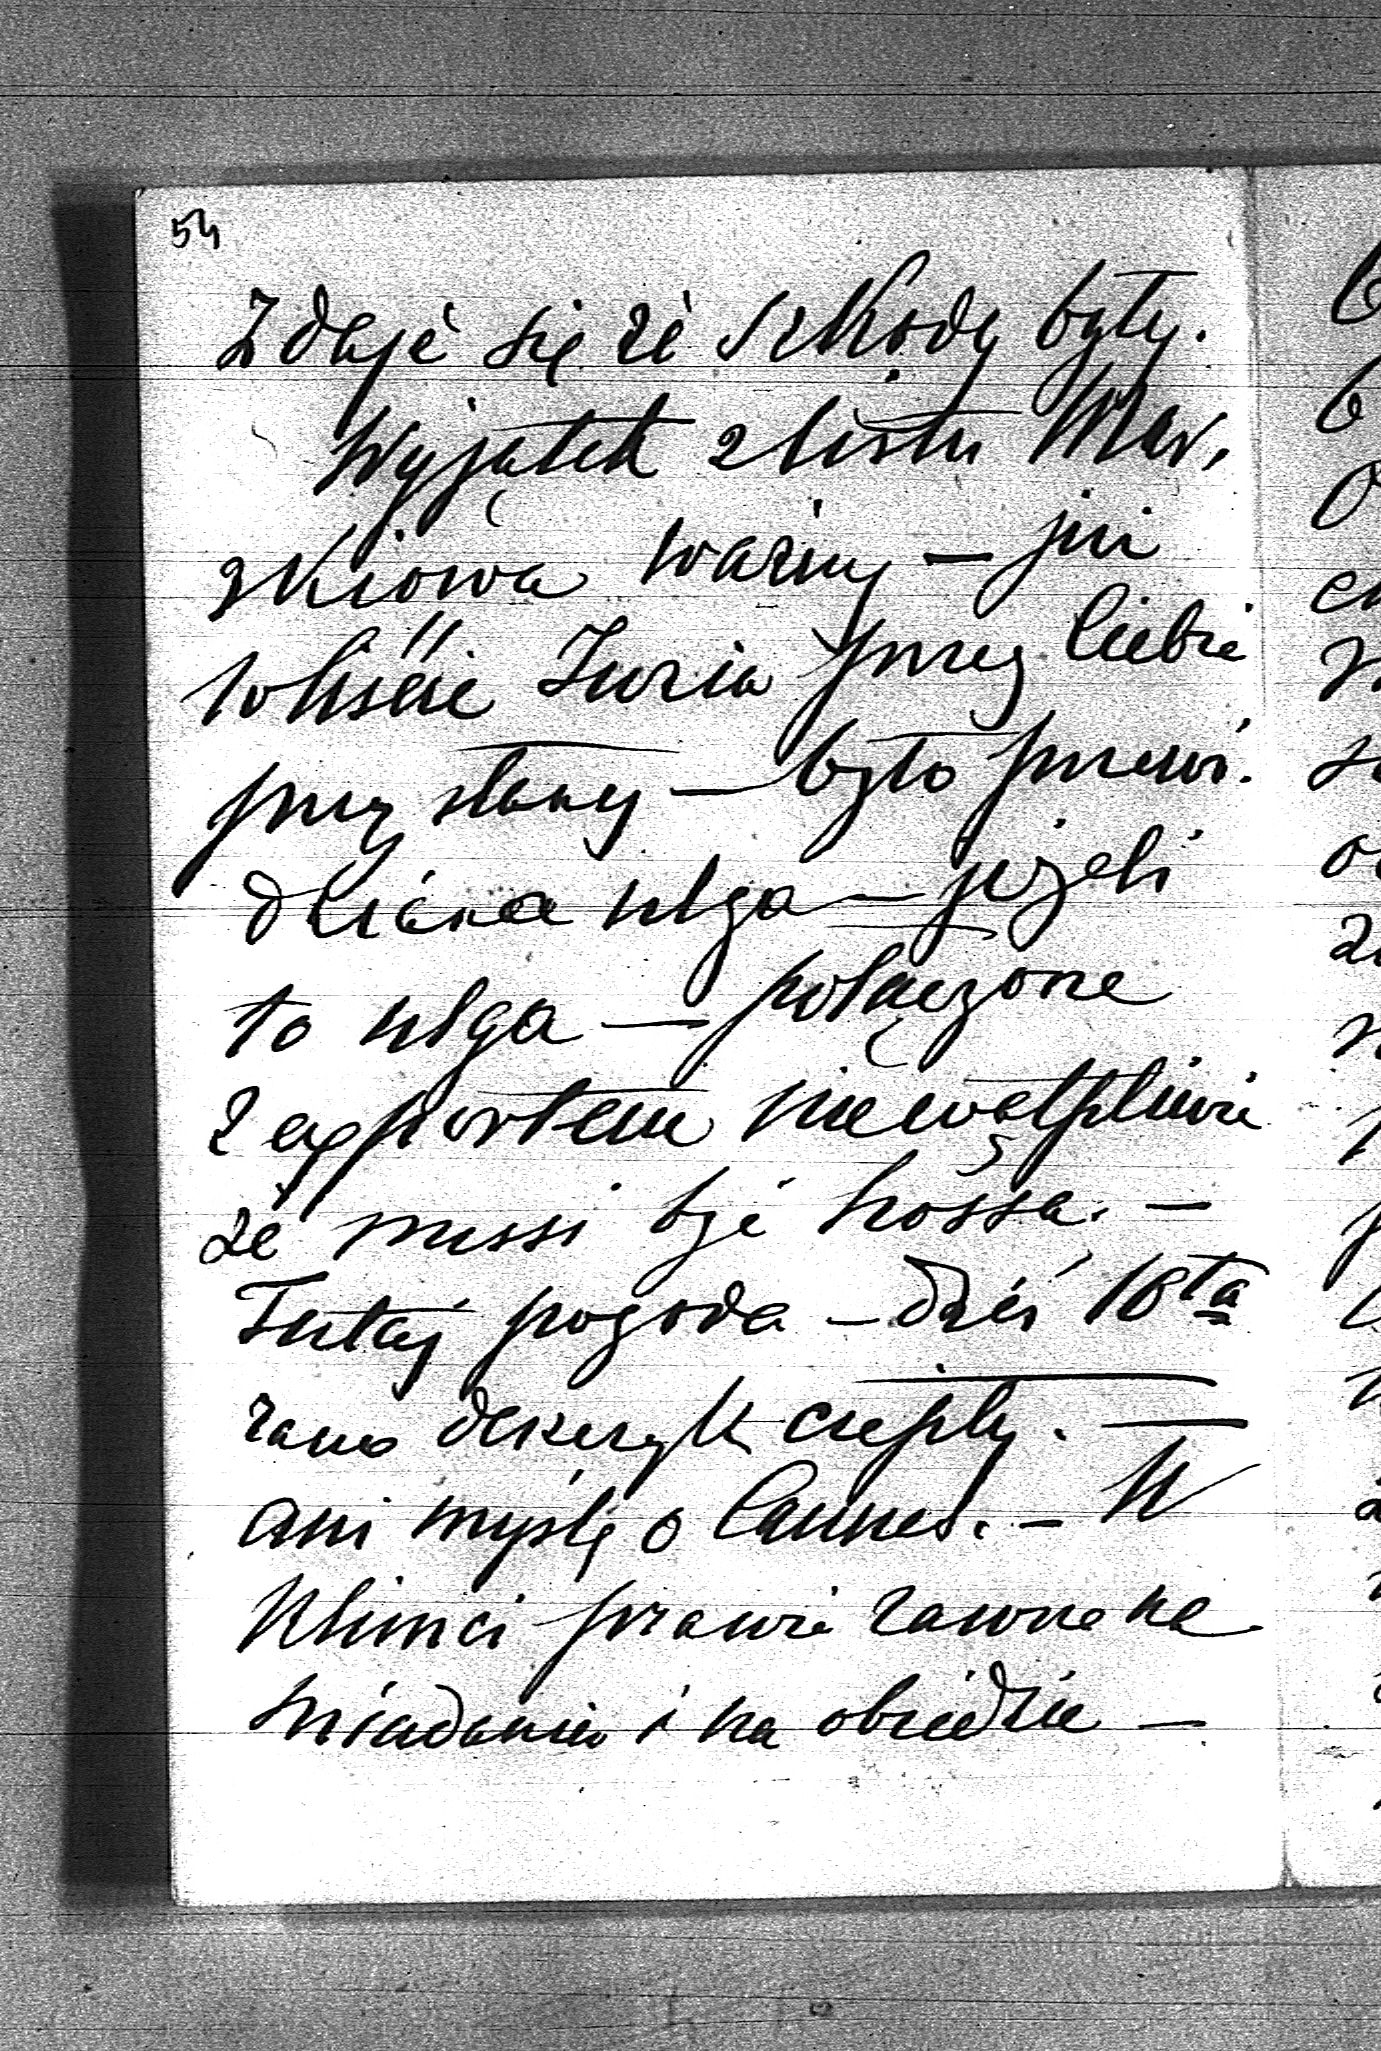 54
Zdaje się że szkody były.
Wyjątek z listu Mar,
zkiowa ważny — już
w liście Juzia przez Ciebie
przysłany — było przewi.
dziana ulga — jeżeli
to ulga — połączone
z exportem niewątpliwie
że mussi być hossa. —
Tutaj pogoda — dziś 10ta
rano deszczyk ciepły. —
ani myślę o Cannes. — W
Klinici prawie zawsze na
śniadanie i na obiedzie —